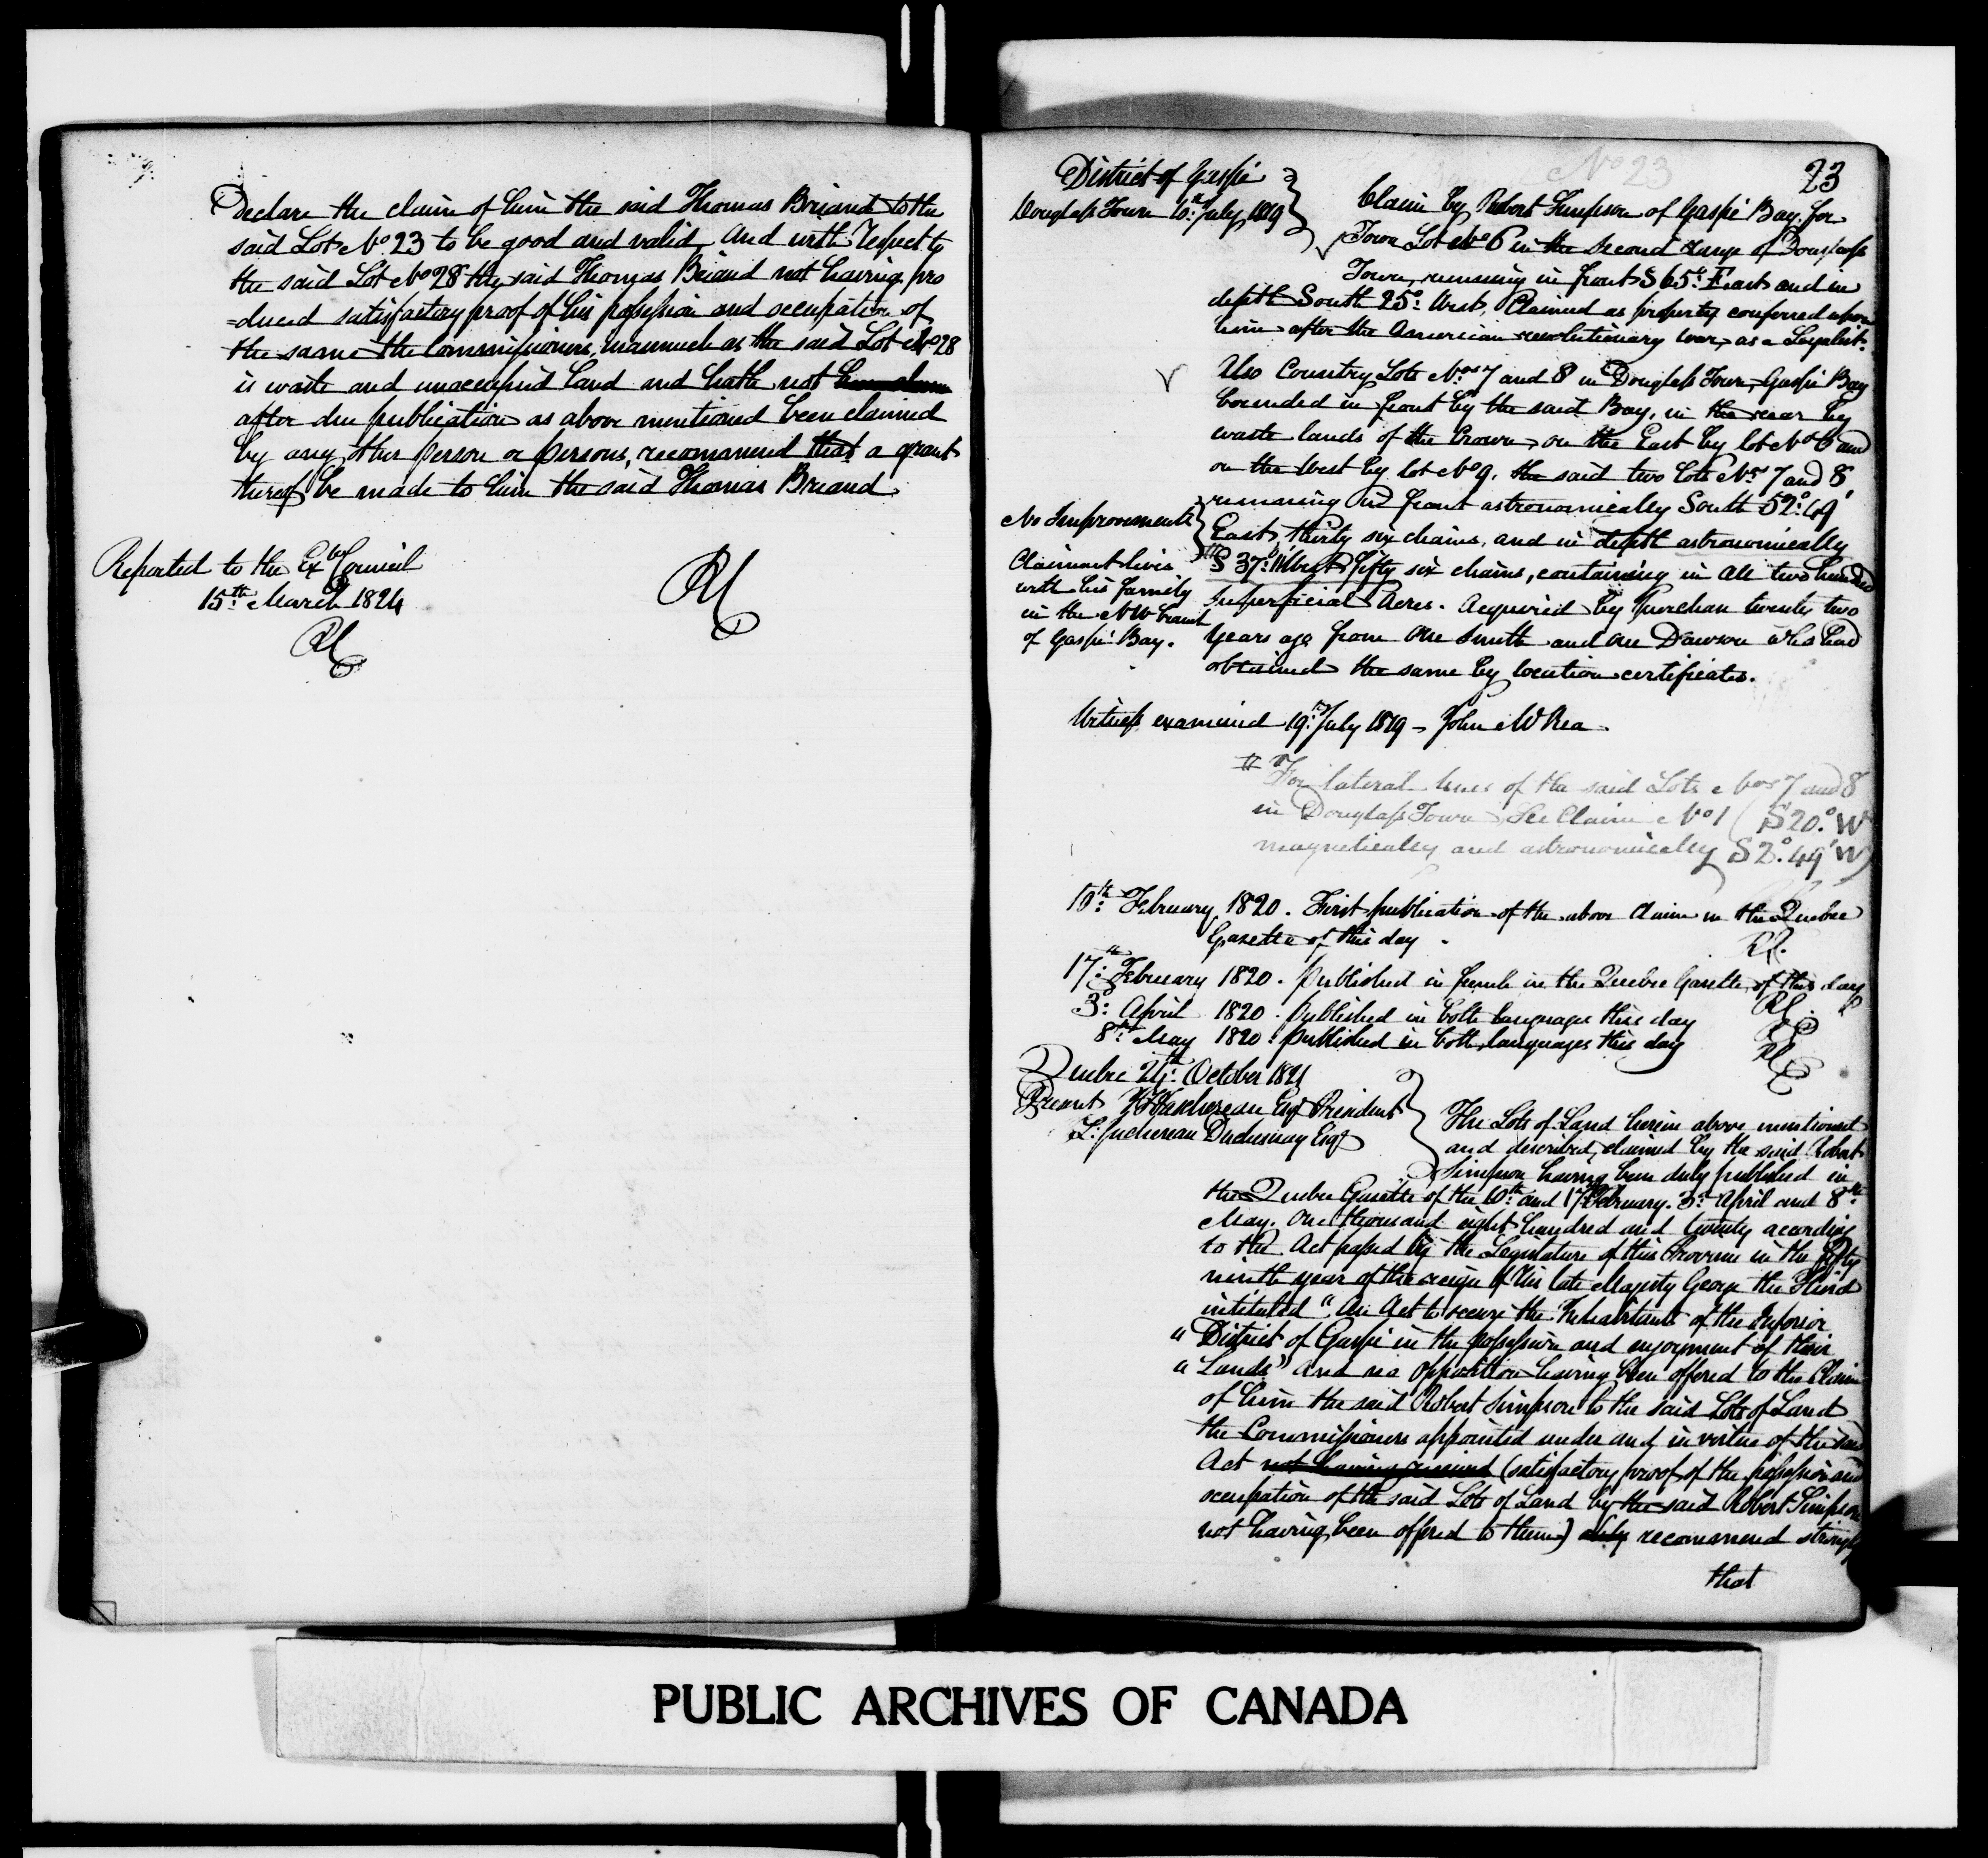 Declare the claim of him the said Thomas Briand to the
said Lot No 23 to be good and valid, And with respect to
the said Lot No 28 the said Thomas Briand not having pro
=duced satisfactory proof of his possession and occupation of
the same the Commissioners, inasmuch as the said Lot No 28
is waste and unoccupied land and hath not
after due publication as above mentioned been claimed
by any other person or persons, recommend that a grant
thereof be made to him the said Thomas Briand
Reported to the Exve Council
15th March 1824
No 23
23
District of Gaspé
Douglass Town 10th July 1819
Claim by Robert Simpson of Gaspé Bay for
Town Lot No 6 in the second range of Douglass
Town, running in front S 65° East and in
depth South 25° West, Claimed as property conferred upon
him after the American revolutionary war, as a Loyalist.
Also Country Lots Nos 7 and 8 in Douglass Town, Gaspé Bay
bounded in front by the said Bay, in the rear by
waste lands of the Crown, on the East by lot No 6 and
on the West by lot No 9, the said two lots Nos 7 and 8
running in front astronomically South 52° 49'
No Improvements
East, thirty six chains, and in depth astronomically
Claimant lives
with his family
in the NW branch
of Gaspé Bay.
S 37° 11' West, fifty six chains, containing in all two hundred
superficial Acres. Acquired by Purchase twenty two
Years ago from One Smith and One Dawson who had
obtained the same by location certificates.
Witness examined 19th July 1819 - John McRea
# For lateral lines of the said Lots Nos 7 and 8
in Douglass Town See Claim No 1 (S 20° W
magnetically and astronomically S 2° 49' W)
10th February 1820. First publication of the above Claim in the Quebec
Gazette of this day.
17th February 1820. Published in french in the Quebec Gazette of this day
3d April 1820. Published in both languages this day
8th May 1820. Published in both languages this day
Quebec 24th October 1821
Present Taschereau Esqr President
L: Juchereau Duchesnay Esqr
The Lots of Land herein above mentioned
and described, claimed by the said Robert
Simpson having been duly published in
the Quebec Gazette of the 10th and 17th February, 3d April and 8th
May, One thousand eight hundred and twenty according
to the Act passed by the Legislature of this Province in the fifty
ninth year of the reign of His late Majesty George the Third
intituled "An Act to secure the Inhabitants of the Inferior
" District of Gaspé in the possession and enjoyment of their
" Lands" And no opposition having been offered to the Claim
of him the said Robert Simpson to the said Lots of Land
the Commissioners appointed under and in virtue of the said
Act not having received (satisfactory proof of the possession and
occupation of the said Lots of Land by the said Robert Simpson
not having been offered to them) recommend strongly
that
PUBLIC ARCHIVES OF CANADA